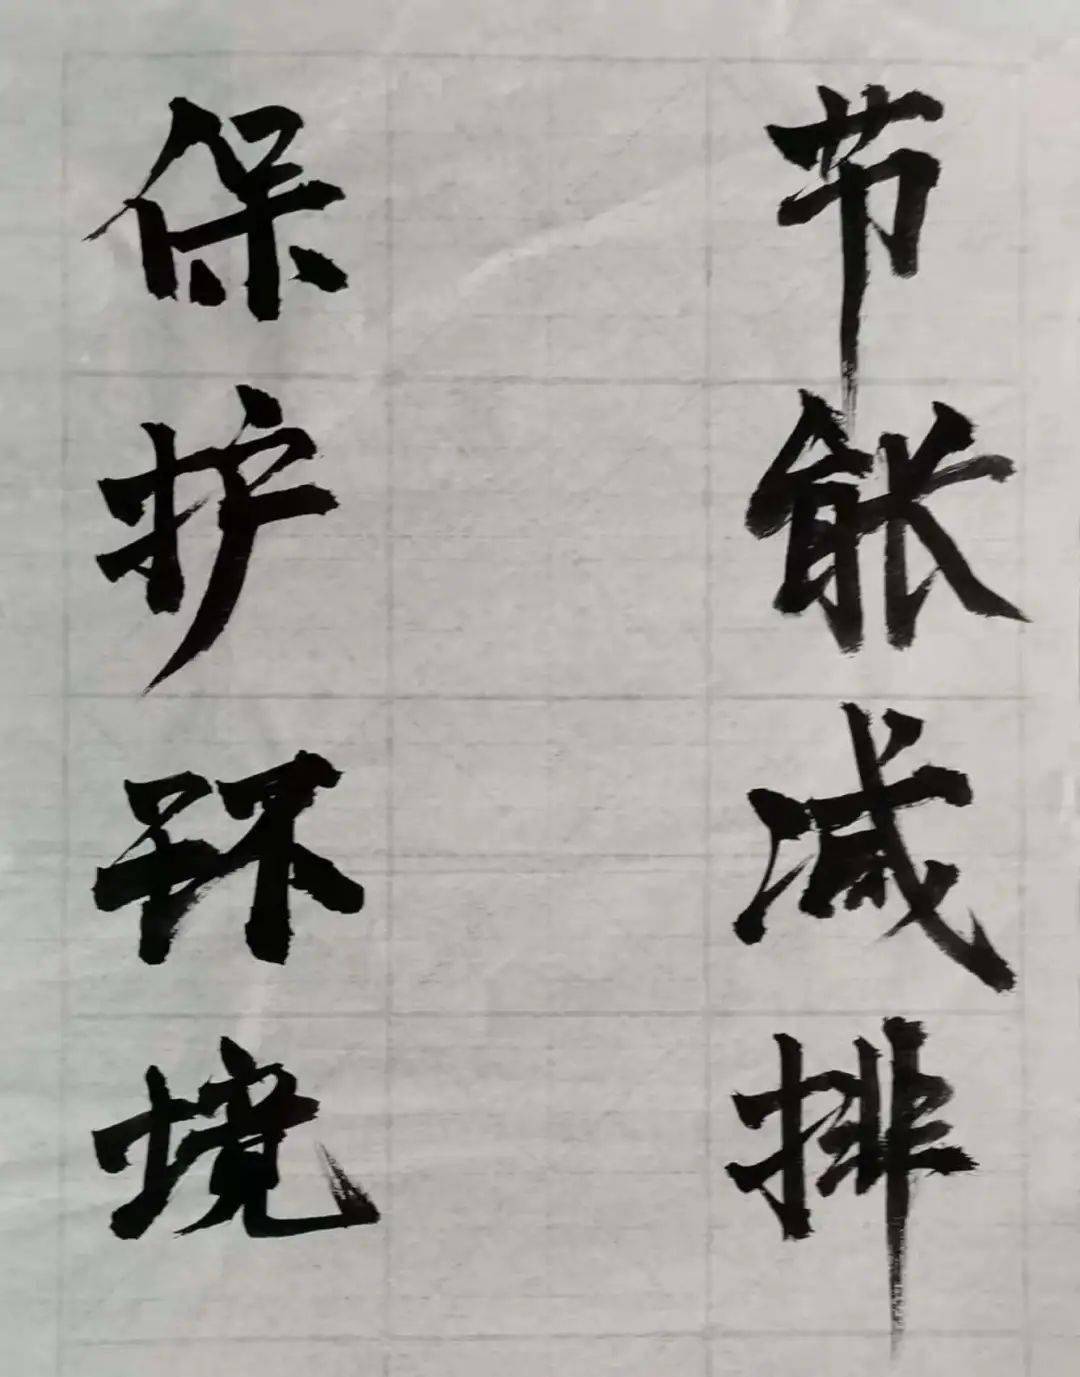 节能减排
保护环境